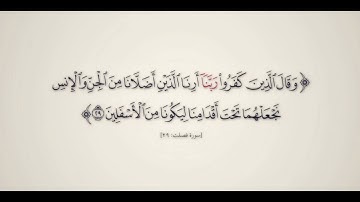 ﴿وَقَالَ ٱلَّذِينَ كَفَرُوا۟ رَبَّنَآ أَرِنَا ٱلَّذَيْنِ أَضَلَّانَا مِنَ ٱلْجِنِّ وَٱلْإِنسِ
نَجْعَلْهُمَا تَحْتَ أَقْدَامِنَا لِيَكُونَا مِنَ ٱلْأَسْفَلِينَ ٢٩﴾
[سورة فصلت: ٢٩]